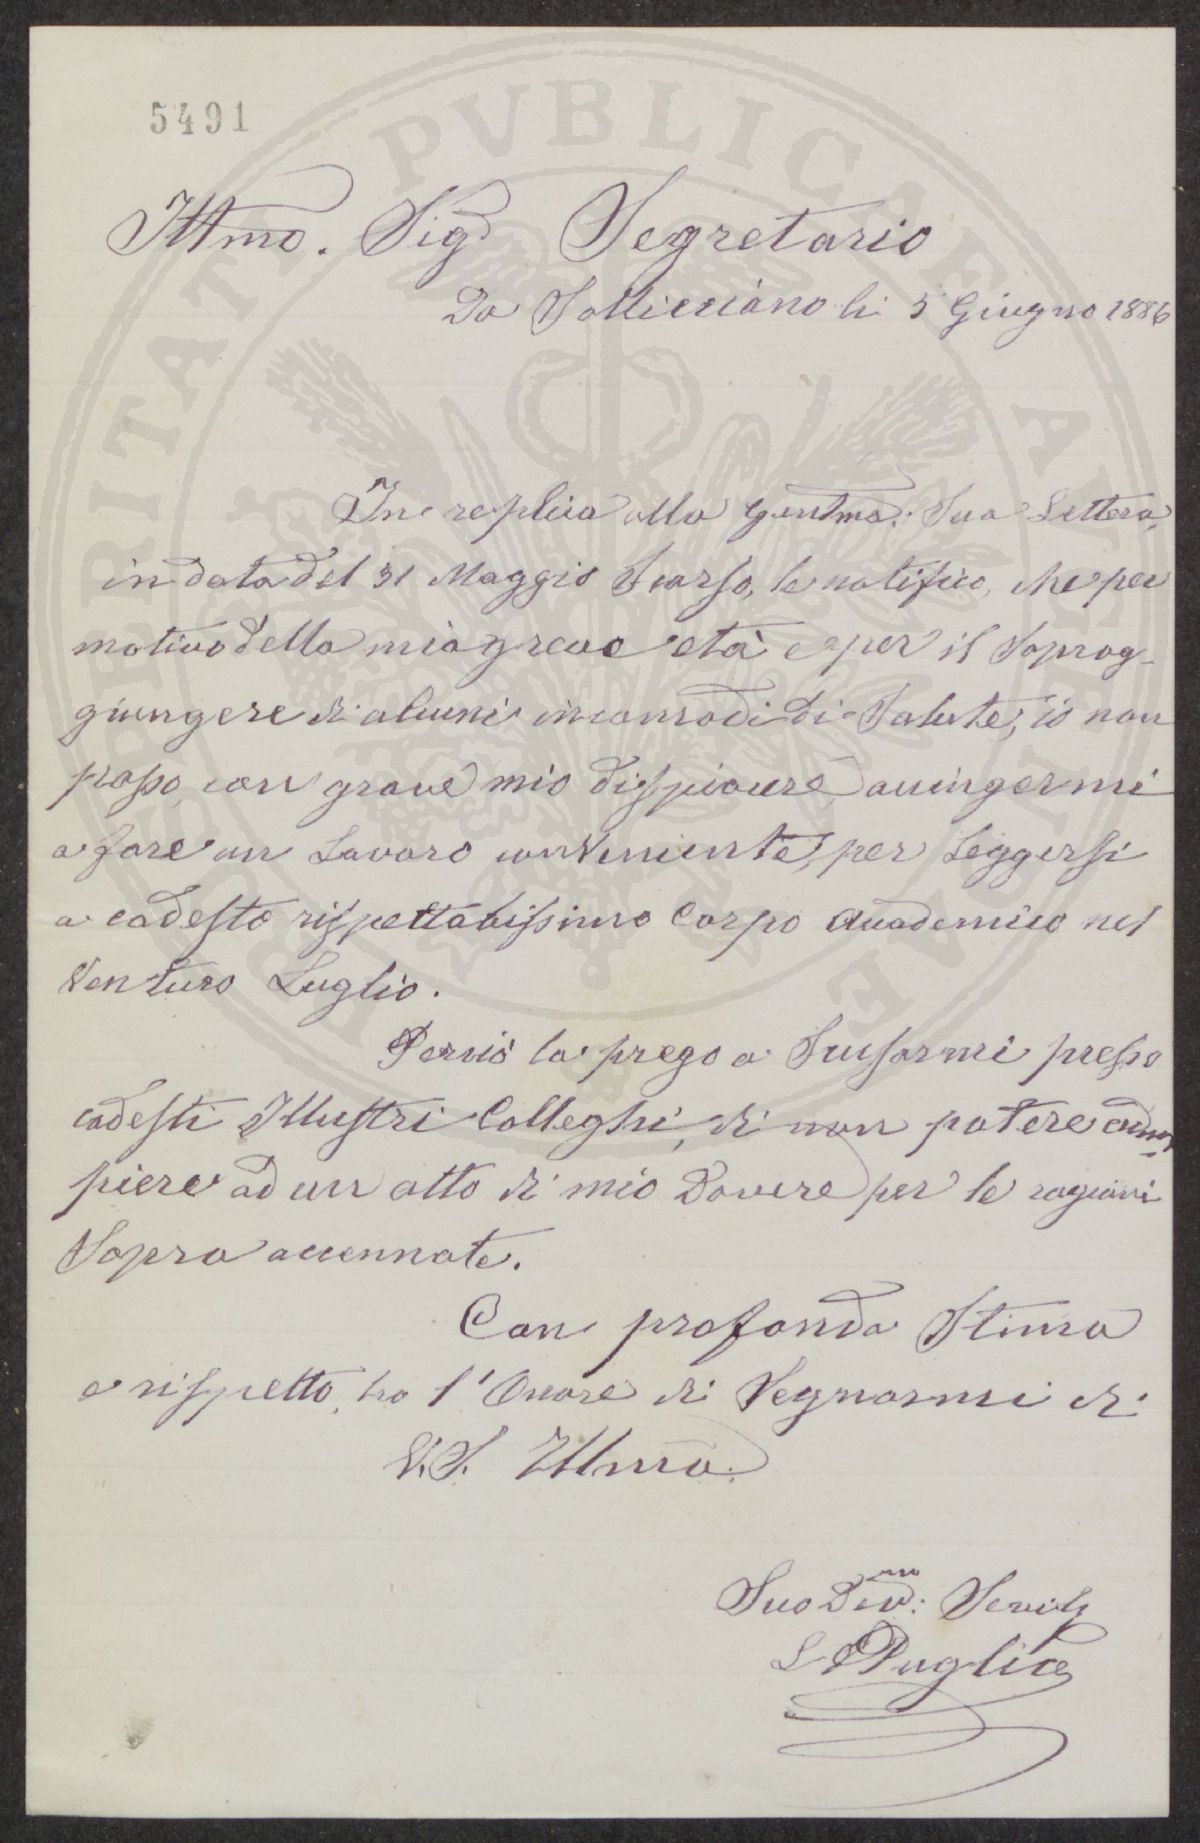 5491
Illmo. Sigr Segretario
Da Sollicciano li 5 Giugno 1886
In replica alla Gentma. Sua Lettera,
in data del 31 Maggio Scarso, le notifico, che per
motivo della mia greve età e per il Soprag-
giungere di alcuni incomodi di Salute, io non
posso, con grave mio dispiacere, accingermi
a fare un Lavoro conveniente, per Leggersi
a codesto rispettabissimo Corpo Accademico nel
Venturo Luglio.
Perciò la prego a Scusarmi presso
codesti Illustri Colleghi, di non potere adem-
piere ad un atto di mio Dovere per le ragioni
Sopra accennate.
Con profonda Stima
e rispetto, ho l'Onore di Segnarmi di
V.S. Illma.
Suo Dev:mo Servit
L Puglia
PROSPERITATI PVBLICAE AVGENDAE